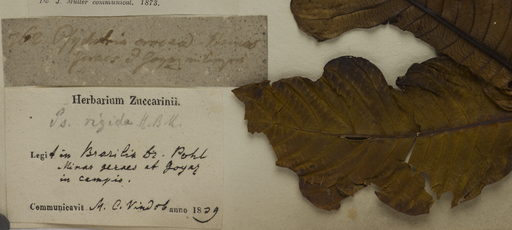 Dr. J. Müller communicat. 1873.
Psychotria crocea
Herbarium Zuccarinii.
Ps. rigida H.B.K.
Legit in Brasilia Dr. Pohl
Minas geraes et Goyaz
in campis.
Communicavit M. C. Vindob anno 1839